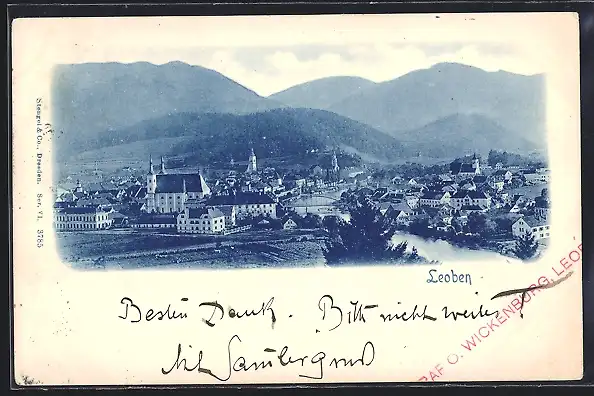 Stengel & Co., Dresden. Ser. VI. 3785
Leoben
Besten Dank. Bitte nicht weiter
RAF O. WICKENBURG, LEOB